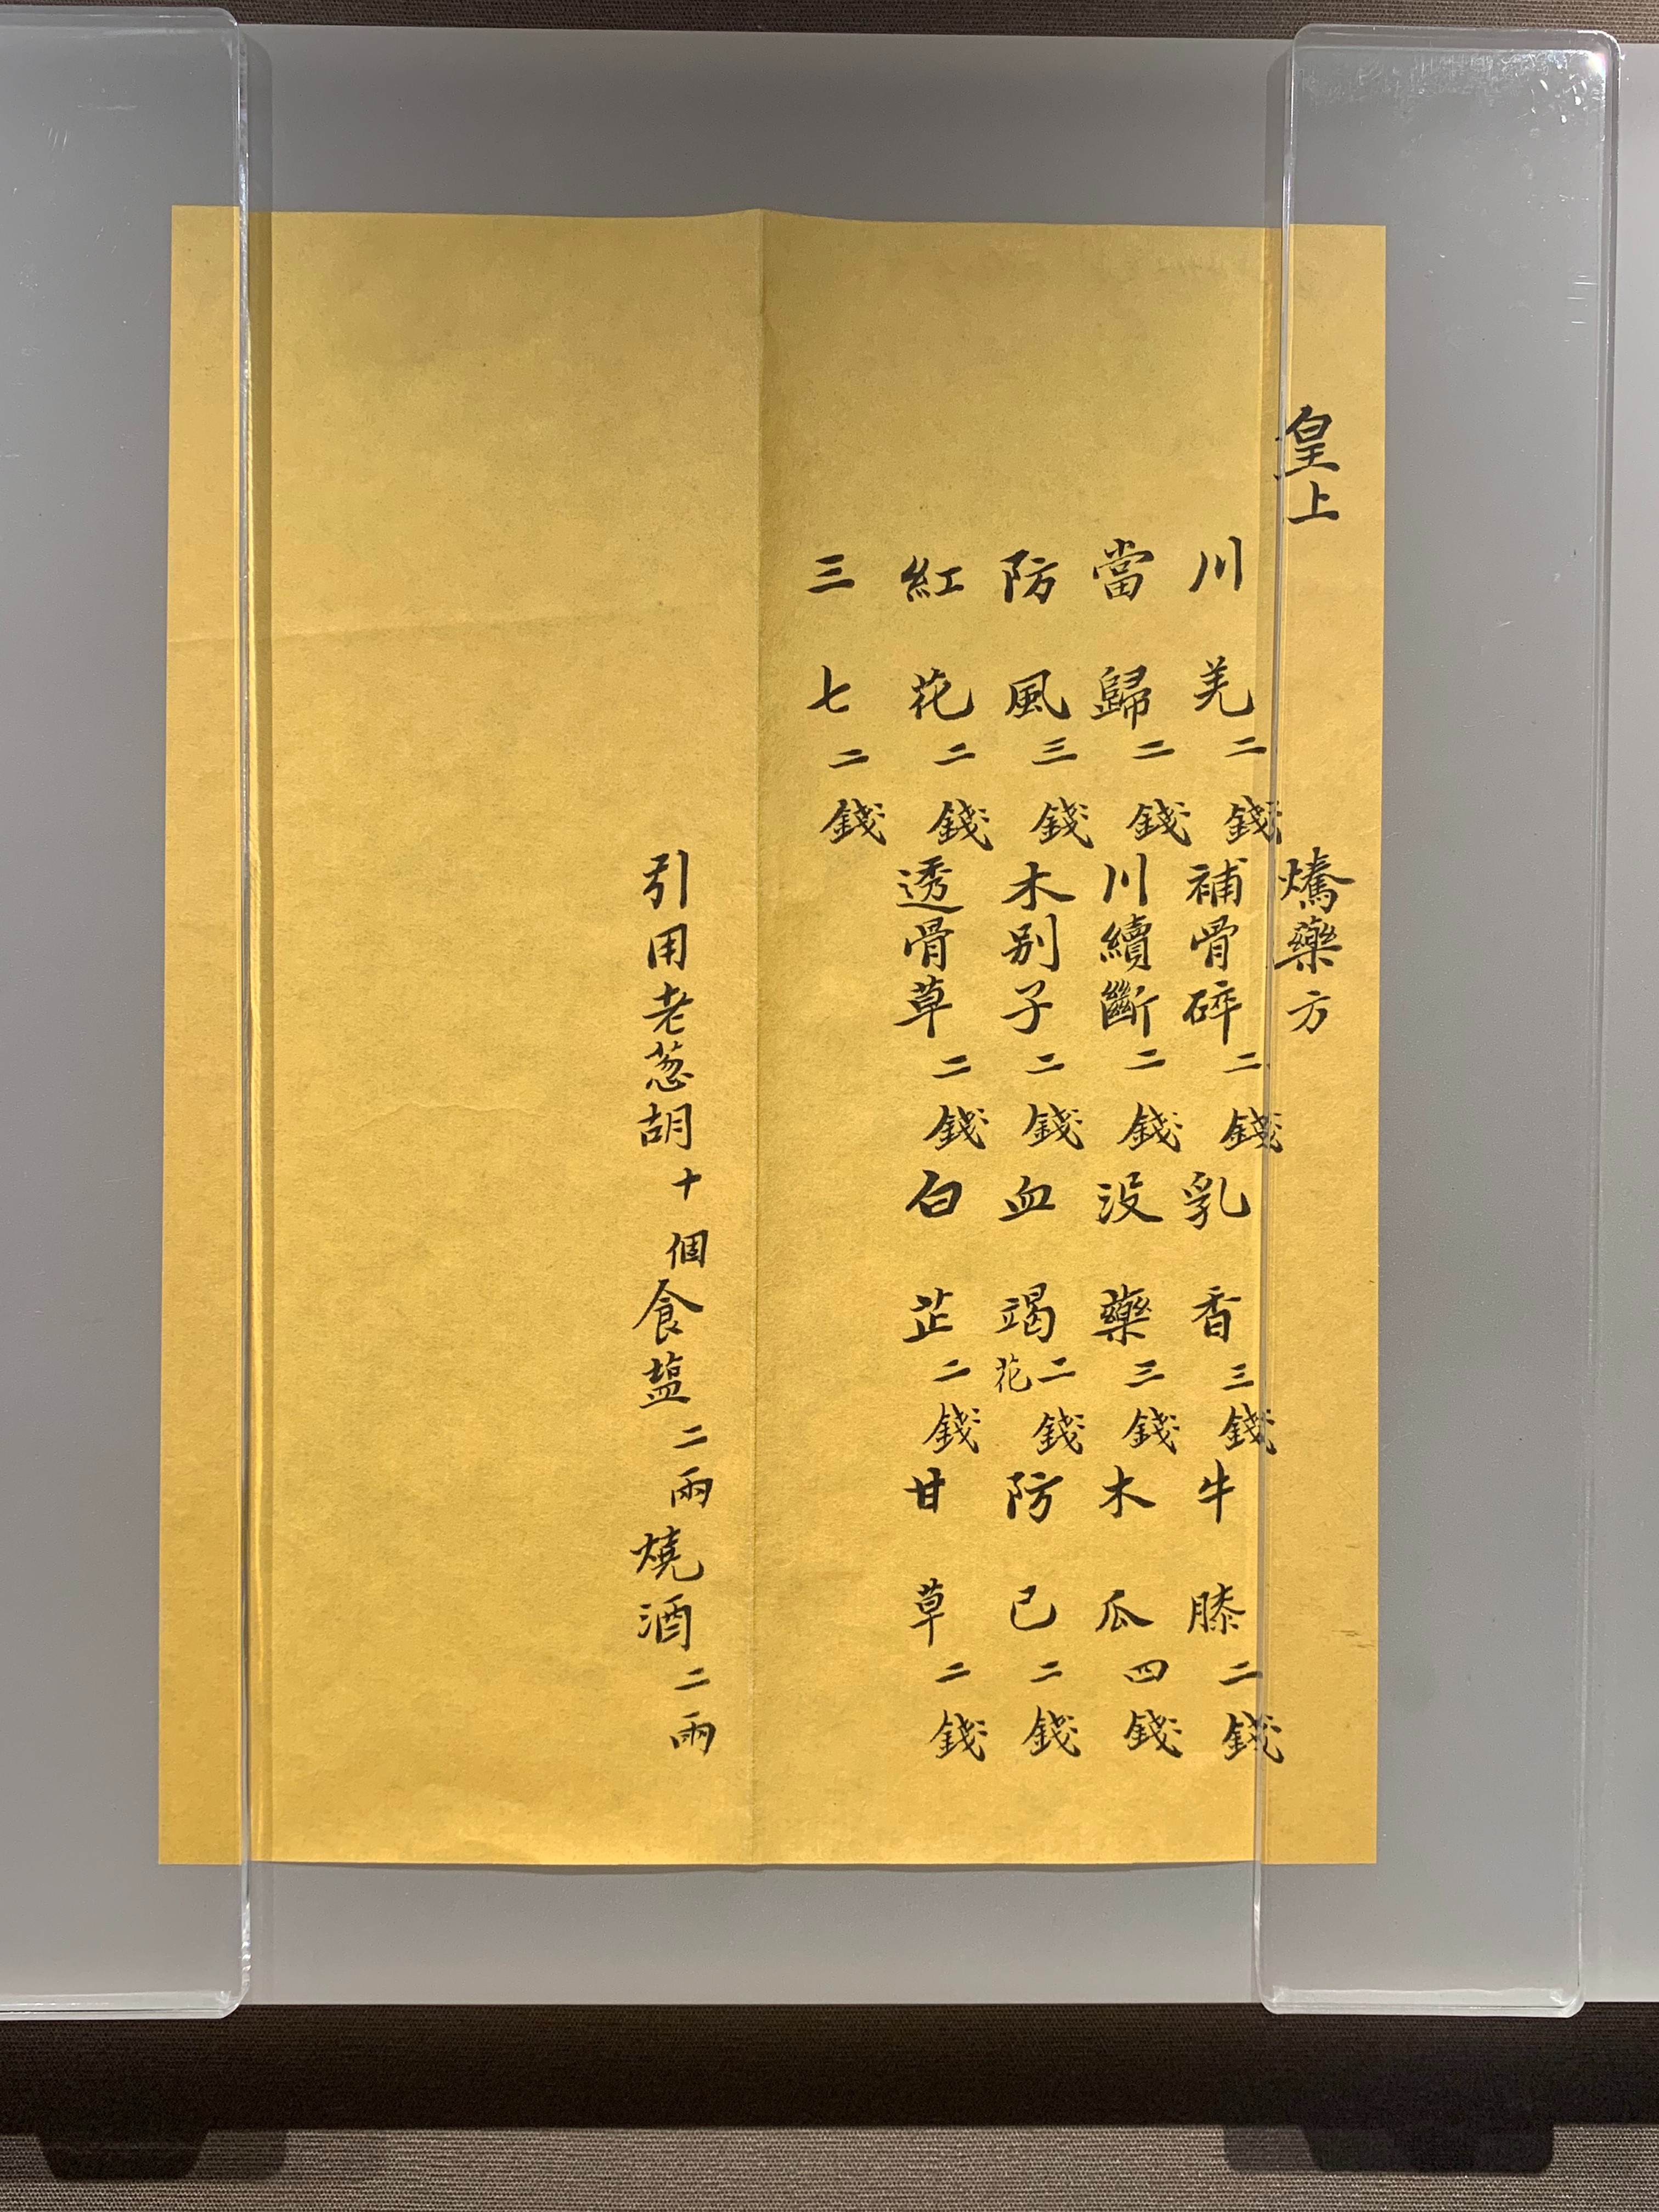 皇上 燆藥方
川羌二錢 補骨碎二錢 乳香三錢 牛膝二錢
當歸二錢 川續斷二錢 没藥三錢 木瓜四錢
防風三錢 木别子二錢 血竭花二錢 防已二錢
紅花二錢 透骨草二錢 白芷二錢 甘草二錢
三七二錢
引用老葱胡十個食塩二兩燒酒二兩